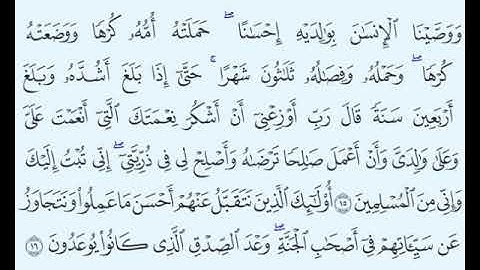 وَوَصَّيْنَا ٱلْإِنسَٰنَ بِوَٰلِدَيْهِ إِحْسَٰنًا ۖ حَمَلَتْهُ أُمُّهُۥ كُرْهًا وَوَضَعَتْهُ
كُرْهًا ۖ وَحَمْلُهُۥ وَفِصَٰلُهُۥ ثَلَٰثُونَ شَهْرًا ۚ حَتَّىٰٓ إِذَا بَلَغَ أَشُدَّهُۥ وَبَلَغَ
أَرْبَعِينَ سَنَةً قَالَ رَبِّ أَوْزِعْنِىٓ أَنْ أَشْكُرَ نِعْمَتَكَ ٱلَّتِىٓ أَنْعَمْتَ عَلَىَّ
وَعَلَىٰ وَٰلِدَىَّ وَأَنْ أَعْمَلَ صَٰلِحًا تَرْضَىٰهُ وَأَصْلِحْ لِى فِى ذُرِّيَّتِىٓ ۖ إِنِّى تُبْتُ إِلَيْكَ
وَإِنِّى مِنَ ٱلْمُسْلِمِينَ ١٥ أُو۟لَٰٓئِكَ ٱلَّذِينَ نَتَقَبَّلُ عَنْهُمْ أَحْسَنَ مَا عَمِلُوا۟ وَنَتَجَاوَزُ
عَن سَيِّـَٔاتِهِمْ فِىٓ أَصْحَٰبِ ٱلْجَنَّةِ ۖ وَعْدَ ٱلصِّدْقِ ٱلَّذِى كَانُوا۟ يُوعَدُونَ ١٦